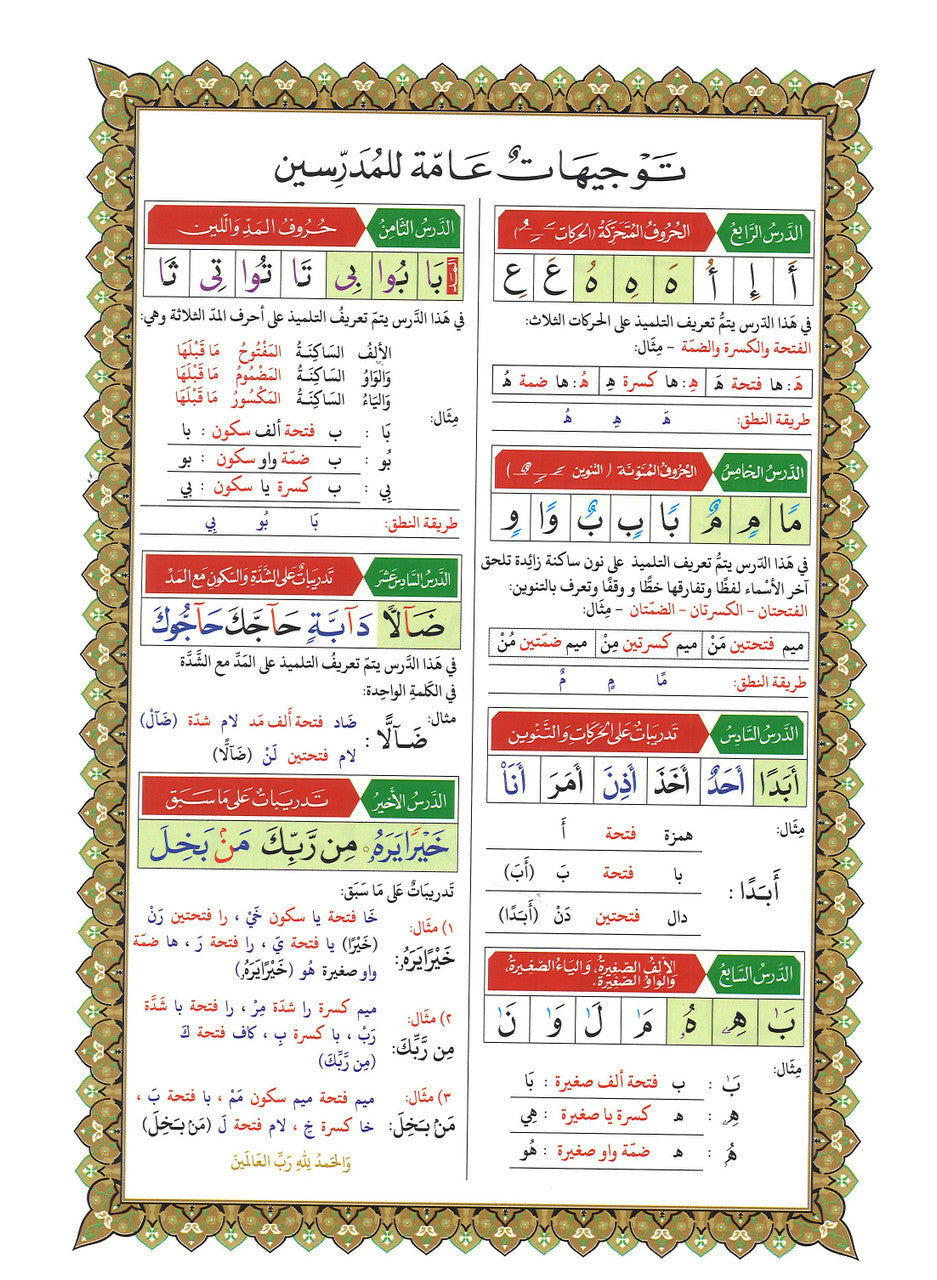 تَوْجِيهَاتٌ عَامّة للمُدَرِّسين
الدَّرسُ الرَّابعُ
الحُروفُ المُتَحَرِّكَةُ (الحركات ـَـِـُ)
أَ إِ أُ هَ هِ هُ عَ عِ
في هَذا الدّرس يتمُّ تعريف التلميذ على الحركات الثلاث:
الفتحة والكسرة والضمّة - مِثَال:
هَ: ها فتحة هَ هِ: ها كسرة هِ هُ: ها ضمة هُ
طريقة النطق: هَ هِ هُ
الدَّرسُ الخامِسُ
الحُروفُ المُنَوَّنَة (التنوين ـًـٍـٌ)
مًا مٍ مٌ بًا بٍ بٌ وًا وٍ
في هَذا الدّرس يتمُّ تعريف التلميذ على نون ساكنة زائِدة تلحق
آخر الأسْماء لفظًا وتفارقها خطًّا و وقفًا وتعرف بالتنوين:
الفتحتان - الكسرتان - الضمّتان - مِثَال:
ميم فتحتين مَنْ ميم كسرتين مِنْ ميم ضمّتين مُنْ
طريقة النطق: مًا مٍ مٌ
الدَّرسُ السَّادِسُ
تدريباتٌ على الحركاتِ والتَّنوين
أَبَدًا أَحَدٌ أَخَذَ أَذِنَ أَمَرَ أَنَا
مِثَال:
همزة فتحة أَ
أَبَدًا: با فتحة بَ (أَبَ)
دال فتحتين دَنْ (أَبَدًا)
الدَّرسُ السَّابعُ
الألِفُ الصَّغيرةُ، وَالياءُ الصَّغيرةُ،
وَالواوُ الصَّغيرَةُ.
بَٰ هِۦ هُۥ مَٰ لَٰ وَٰ نَٰ
مِثَال:
بَٰ : ب فتحة ألف صغيرة : بَا
هِۦ : ه كسرة يا صغيرة : هِي
هُۥ : ه ضمّة واو صغيرة : هُو
الدَّرسُ الثَّامنُ
حُروفُ المَدِّ وَاللّين
المد بَا بُوا بِي تَا تُوا تِي ثَا
في هَذا الدَّرس يتمّ تعريفُ التلميذ على أحرف المدّ الثلاثة وهي:
الألِفُ السَاكِنَةُ المَفْتُوحُ مَا قَبْلَهَا
وَالوَاوُ السَاكِنَةُ المَضْمُومُ مَا قَبْلَهَا
وَاليَاءُ السَاكِنَةُ المَكْسُورُ مَا قَبْلَهَا
مِثَال:
بَا : ب فتحة ألف سكون : با
بُو : ب ضمّة واو سكون : بو
بِي : ب كسرة يا سكون : بي
طريقة النطق: بَا بُو بِي
الدَّرسُ السَّادسَ عَشَر
تدريباتٌ على الشَّدَّة والسّكون مَع المَدّ
ضَآلًّا دَآبَّةٍ حَآجَّكَ حَآجُّوكَ
في هَذا الدَّرس يتمّ تعريفُ التلميذ على المَدِّ مع الشَّدَّة
في الكَلمةِ الواحِدة:
مثال: ضَاد فتحة أَلف مَد لام شدّة (ضَآلْ)
ضَآلًّا : لام فتحتين لَنْ (ضَآلًّا)
الدَّرسُ الأخيرُ
تَدريباتٌ على مَا سَبَق
خَيْرًا يَرَهُۥ مِن رَّبِّكَ مَنۢ بَخِلَ
تَدريباتٌ عَلى مَا سَبَق:
١) مثال: خَا فتحة يا سكون خَيْ ، را فتحتين رَنْ
خَيْرًا يَرَهُۥ: (خَيْرًا) يا فتحة يَ ، را فتحة رَ ، ها ضمّة
واو صغيرة هُو (خَيْرًا يَرَهُۥ)
٢) مثال: ميم كسرة را شدّة مِرْ ، را فتحة با شَدَّة
مِن رَّبِّكَ: رَبْ ، با كسرة بِ ، كاف فتحة كَ
(مِن رَّبِّكَ)
٣) مثال: ميم فتحة ميم سكون مَمْ ، با فتحة بَ ،
مَنۢ بَخِلَ: خا كسرة خِ ، لام فتحة لَ (مَنۢ بَخِلَ)
وَالحَمدُ لِلهِ رَبِّ العَالَمينَ